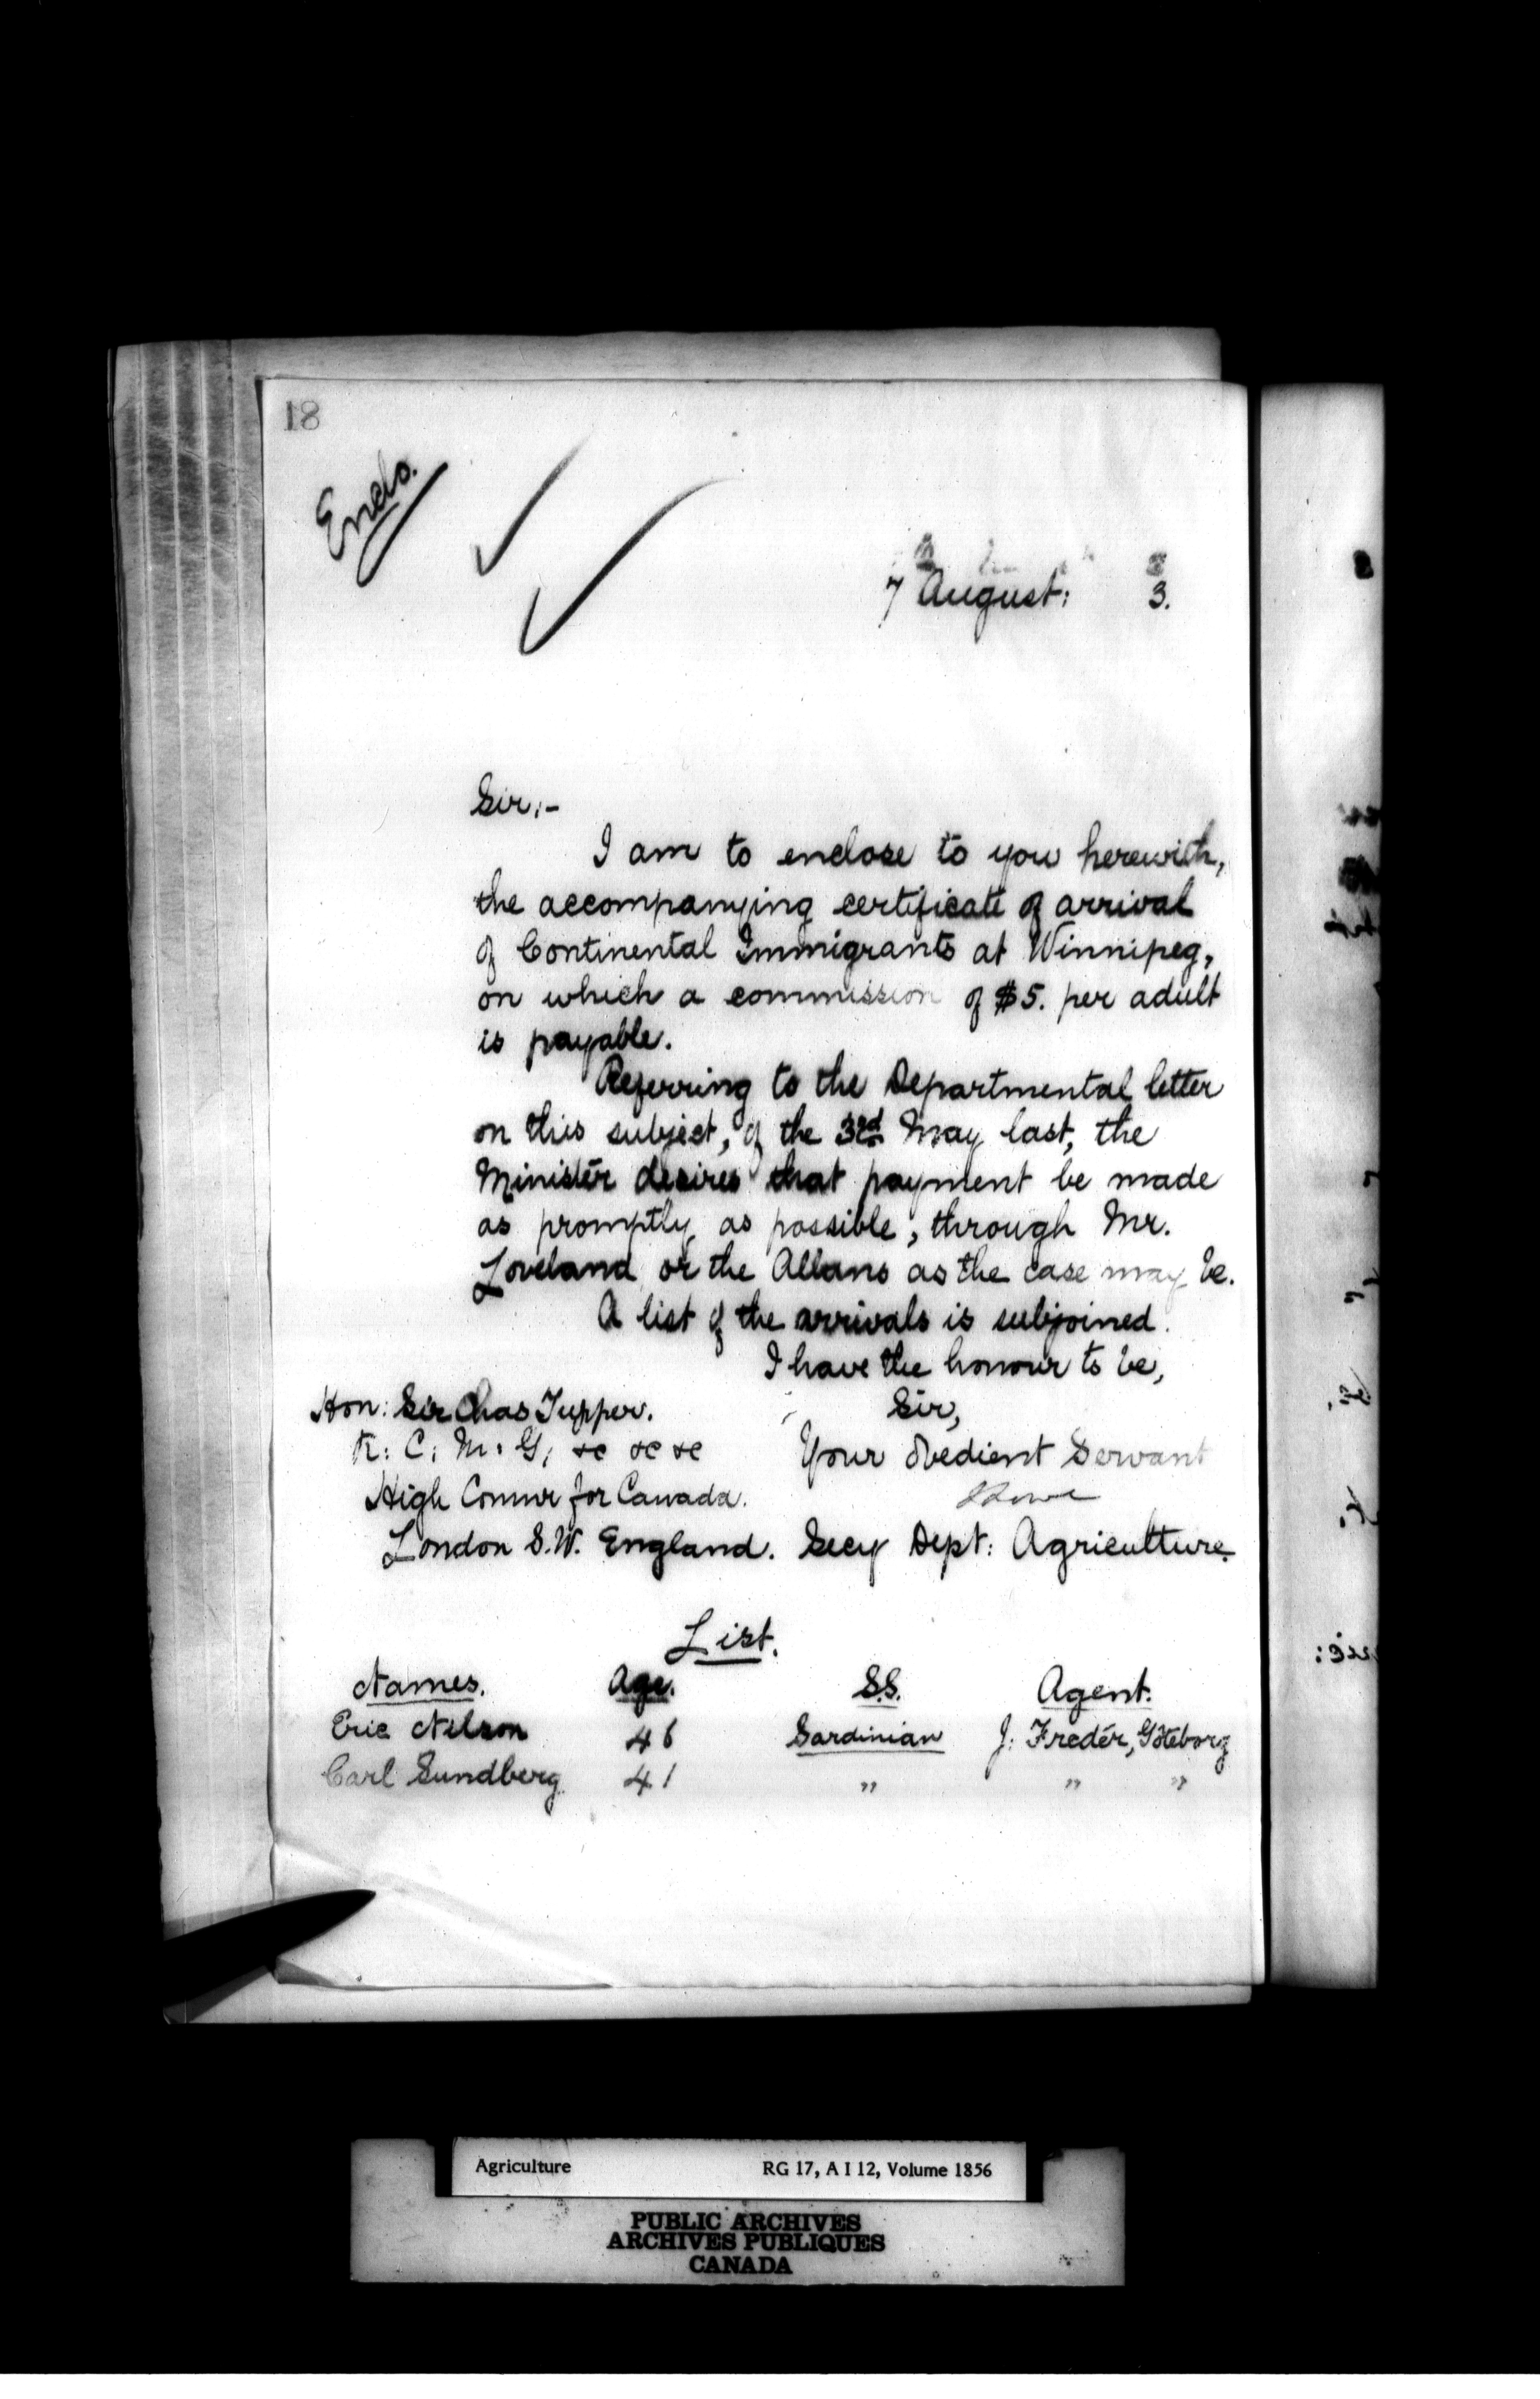 18
Encls.
7 August: 3.
Sir:-
I am to enclose to you herewith,
the accompanying certificate of arrival
of Continental Immigrants at Winnipeg,
on which a commission of $5. per adult
is payable.
Referring to the Departmental letter
on this subject, of the 3rd May last, the
Minister desires that payment be made
as promptly as possible, through Mr.
Loveland or the Allans as the case may be.
A list of the arrivals is subjoined.
I have the honour to be,
Hon: Sir Chas Tupper. Sir,
K: C: M: G, &c &c &c Your Obedient Servant
High Commr for Canada. Lowe
London S.W. England. Secy Dept: Agriculture.
List.
Names. Age. S.S. Agent.
Eric Nilson 46 Sardinian J: Fredér, Göteborg
Carl Sundberg 41 " " "
Agriculture RG 17, A I 12, Volume 1856
PUBLIC ARCHIVES
ARCHIVES PUBLIQUES
CANADA